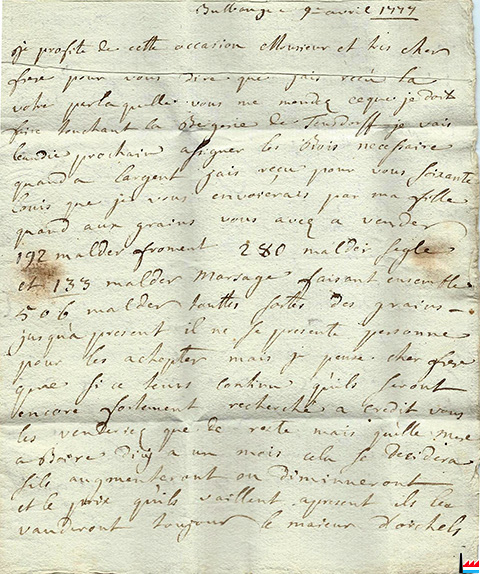 9me avril 1777
je profite de cette occasion Monsieur et tres cher
frere pour vous dire que jais recu la
votre par laquelle vous me mandez ceque je doit
faire touchant la Bergerie de je vais
prochain assigner les Bois necessaire
quand a largent jais recu pour vous soixante
louis que je vous envoierais par ma fille
quand aux grains vous avez a vendre
192 malder froment 280 malder segle
et 133 malder Marsage faisant ensemble
506 malder touttes sortes des grains
jusqua present il ne se presente personne
pour les achepter mais je pense cher frere
que si ce tems continu qu'ils seront
encore fortement recherché a credit vous
les venderez que de reste mais
a dicy a un mois cela se decidera
sils augmenteront ou diminneront
et le prix quils vaillent apresent ils les
vauderont toujour le maieur